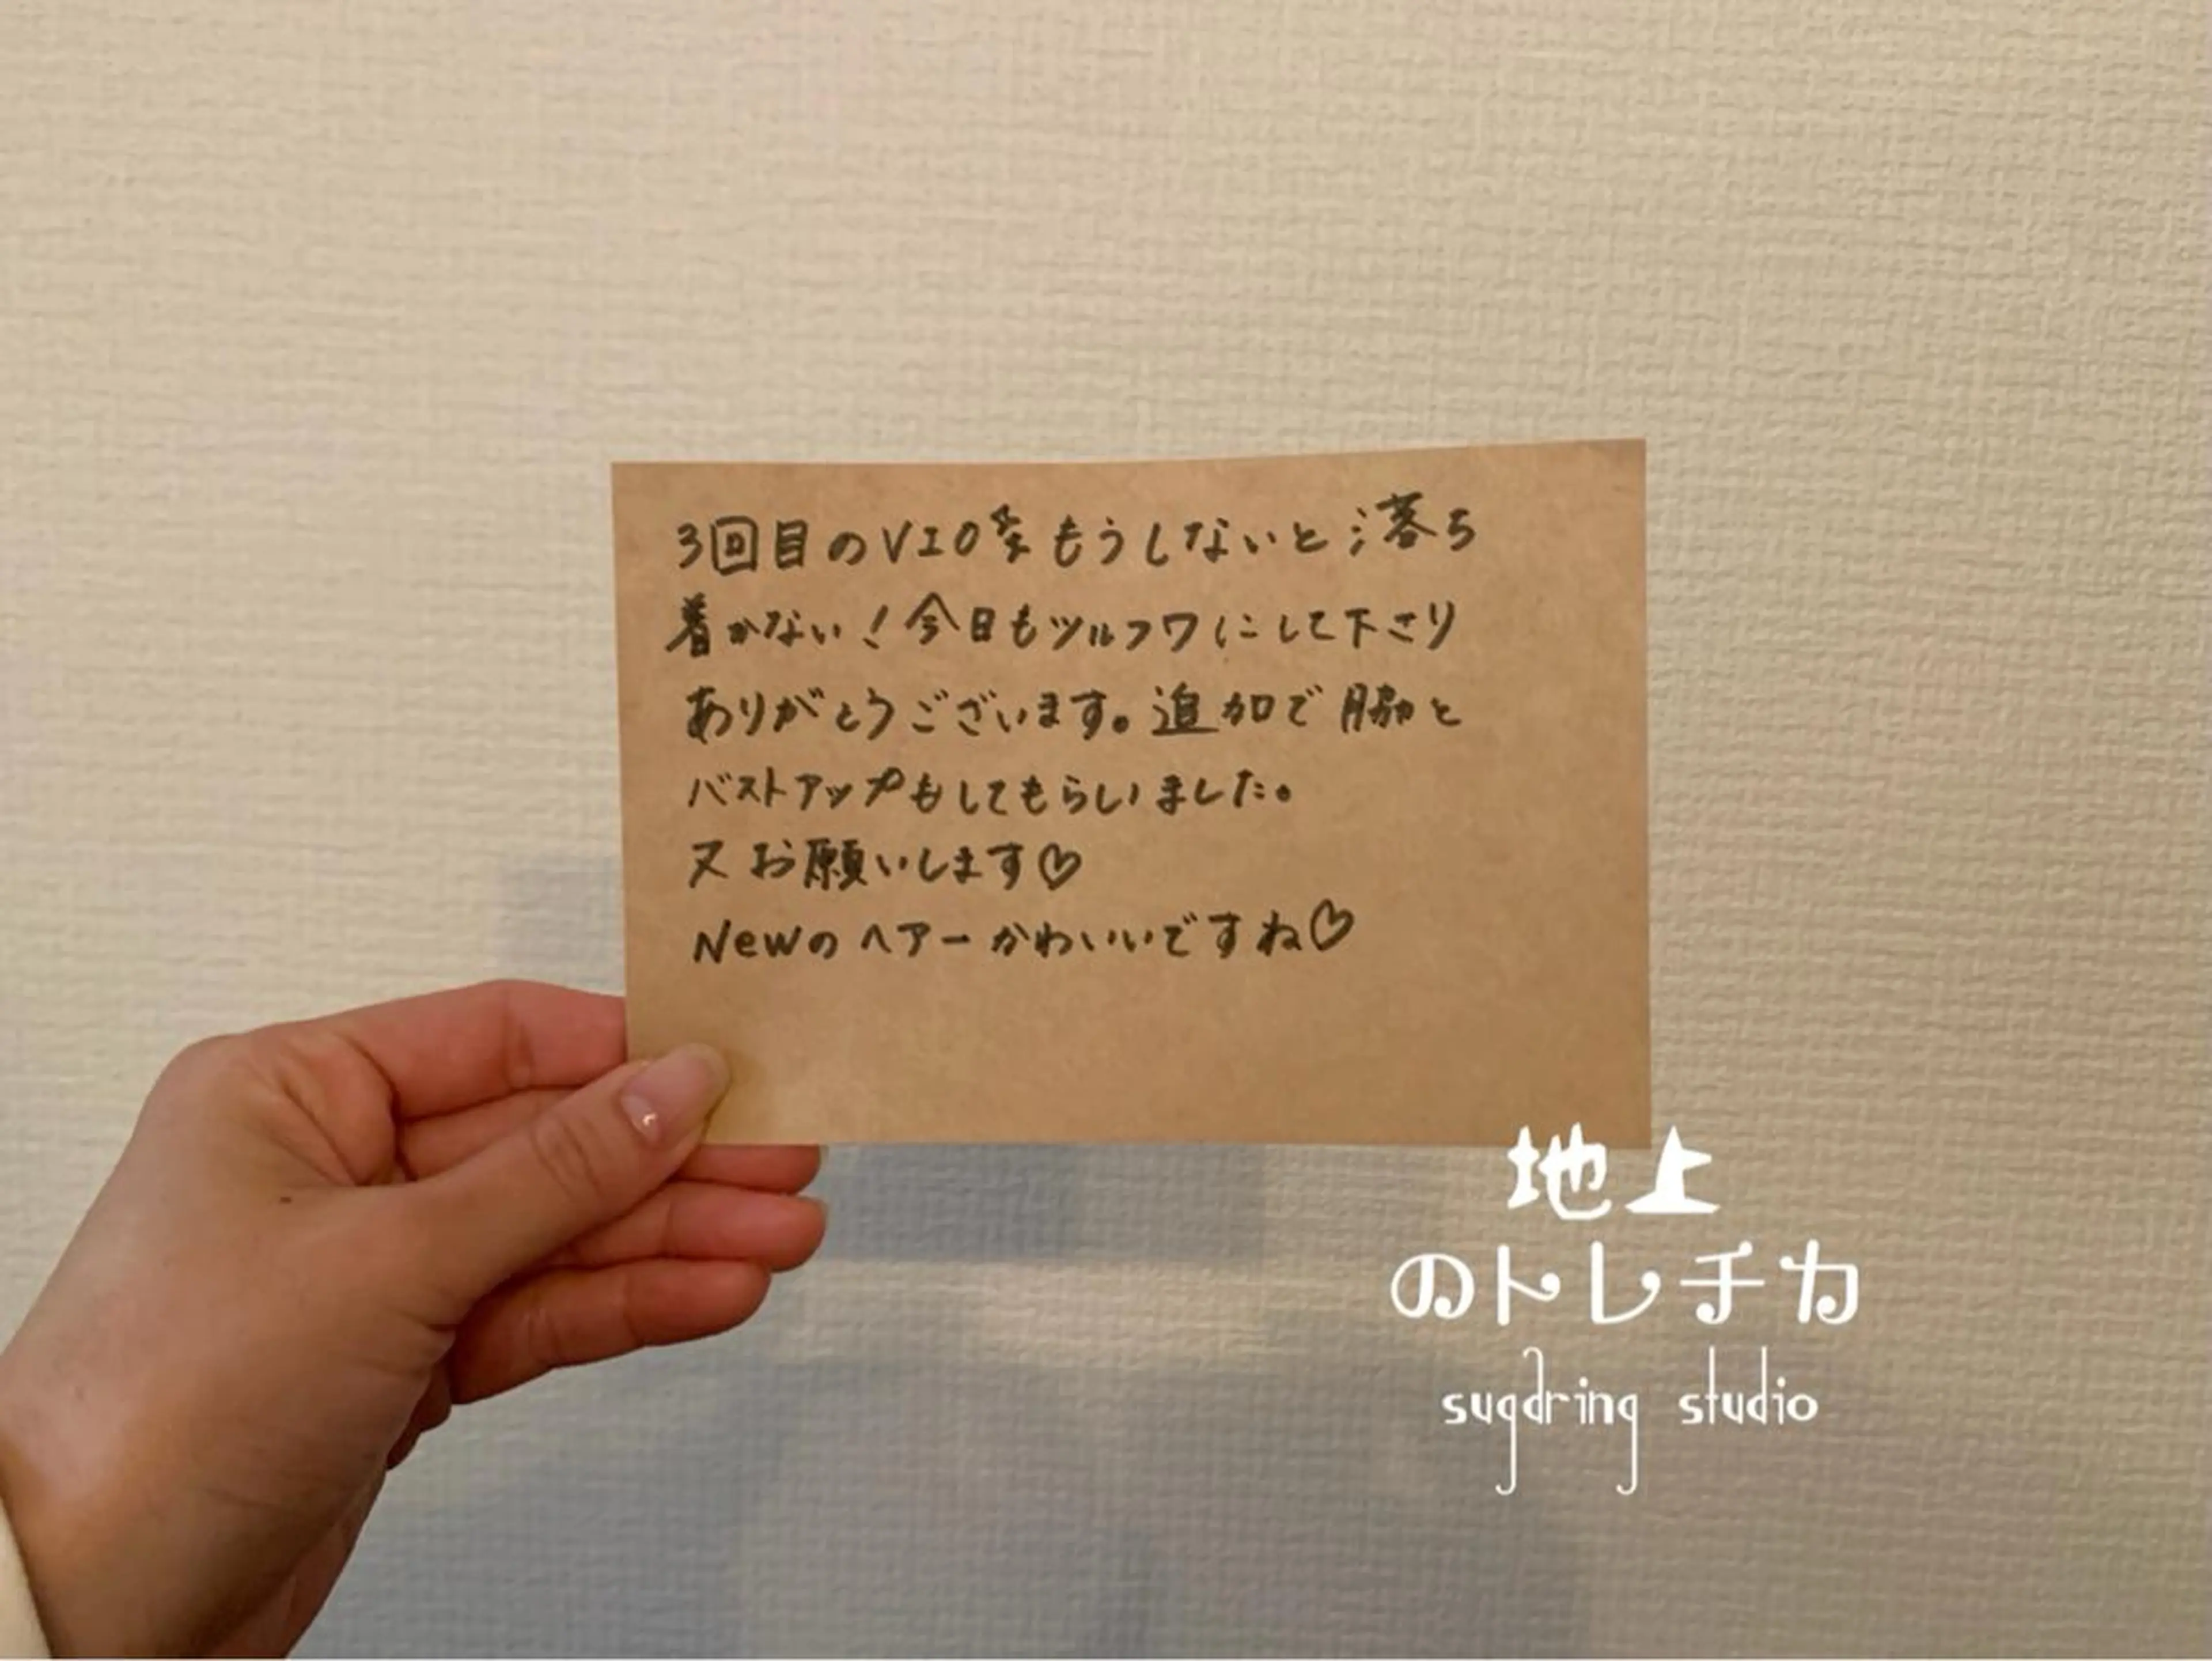 3回目のVIO☆もうしないと落ち
着かない！今日もツルフワにして下さり
ありがとうございます。追加で脇と
バストアップもしてもらいました。
又お願いします♡
Newのヘアーかわいいですね♡
地上
のトレチカ
sugaring studio